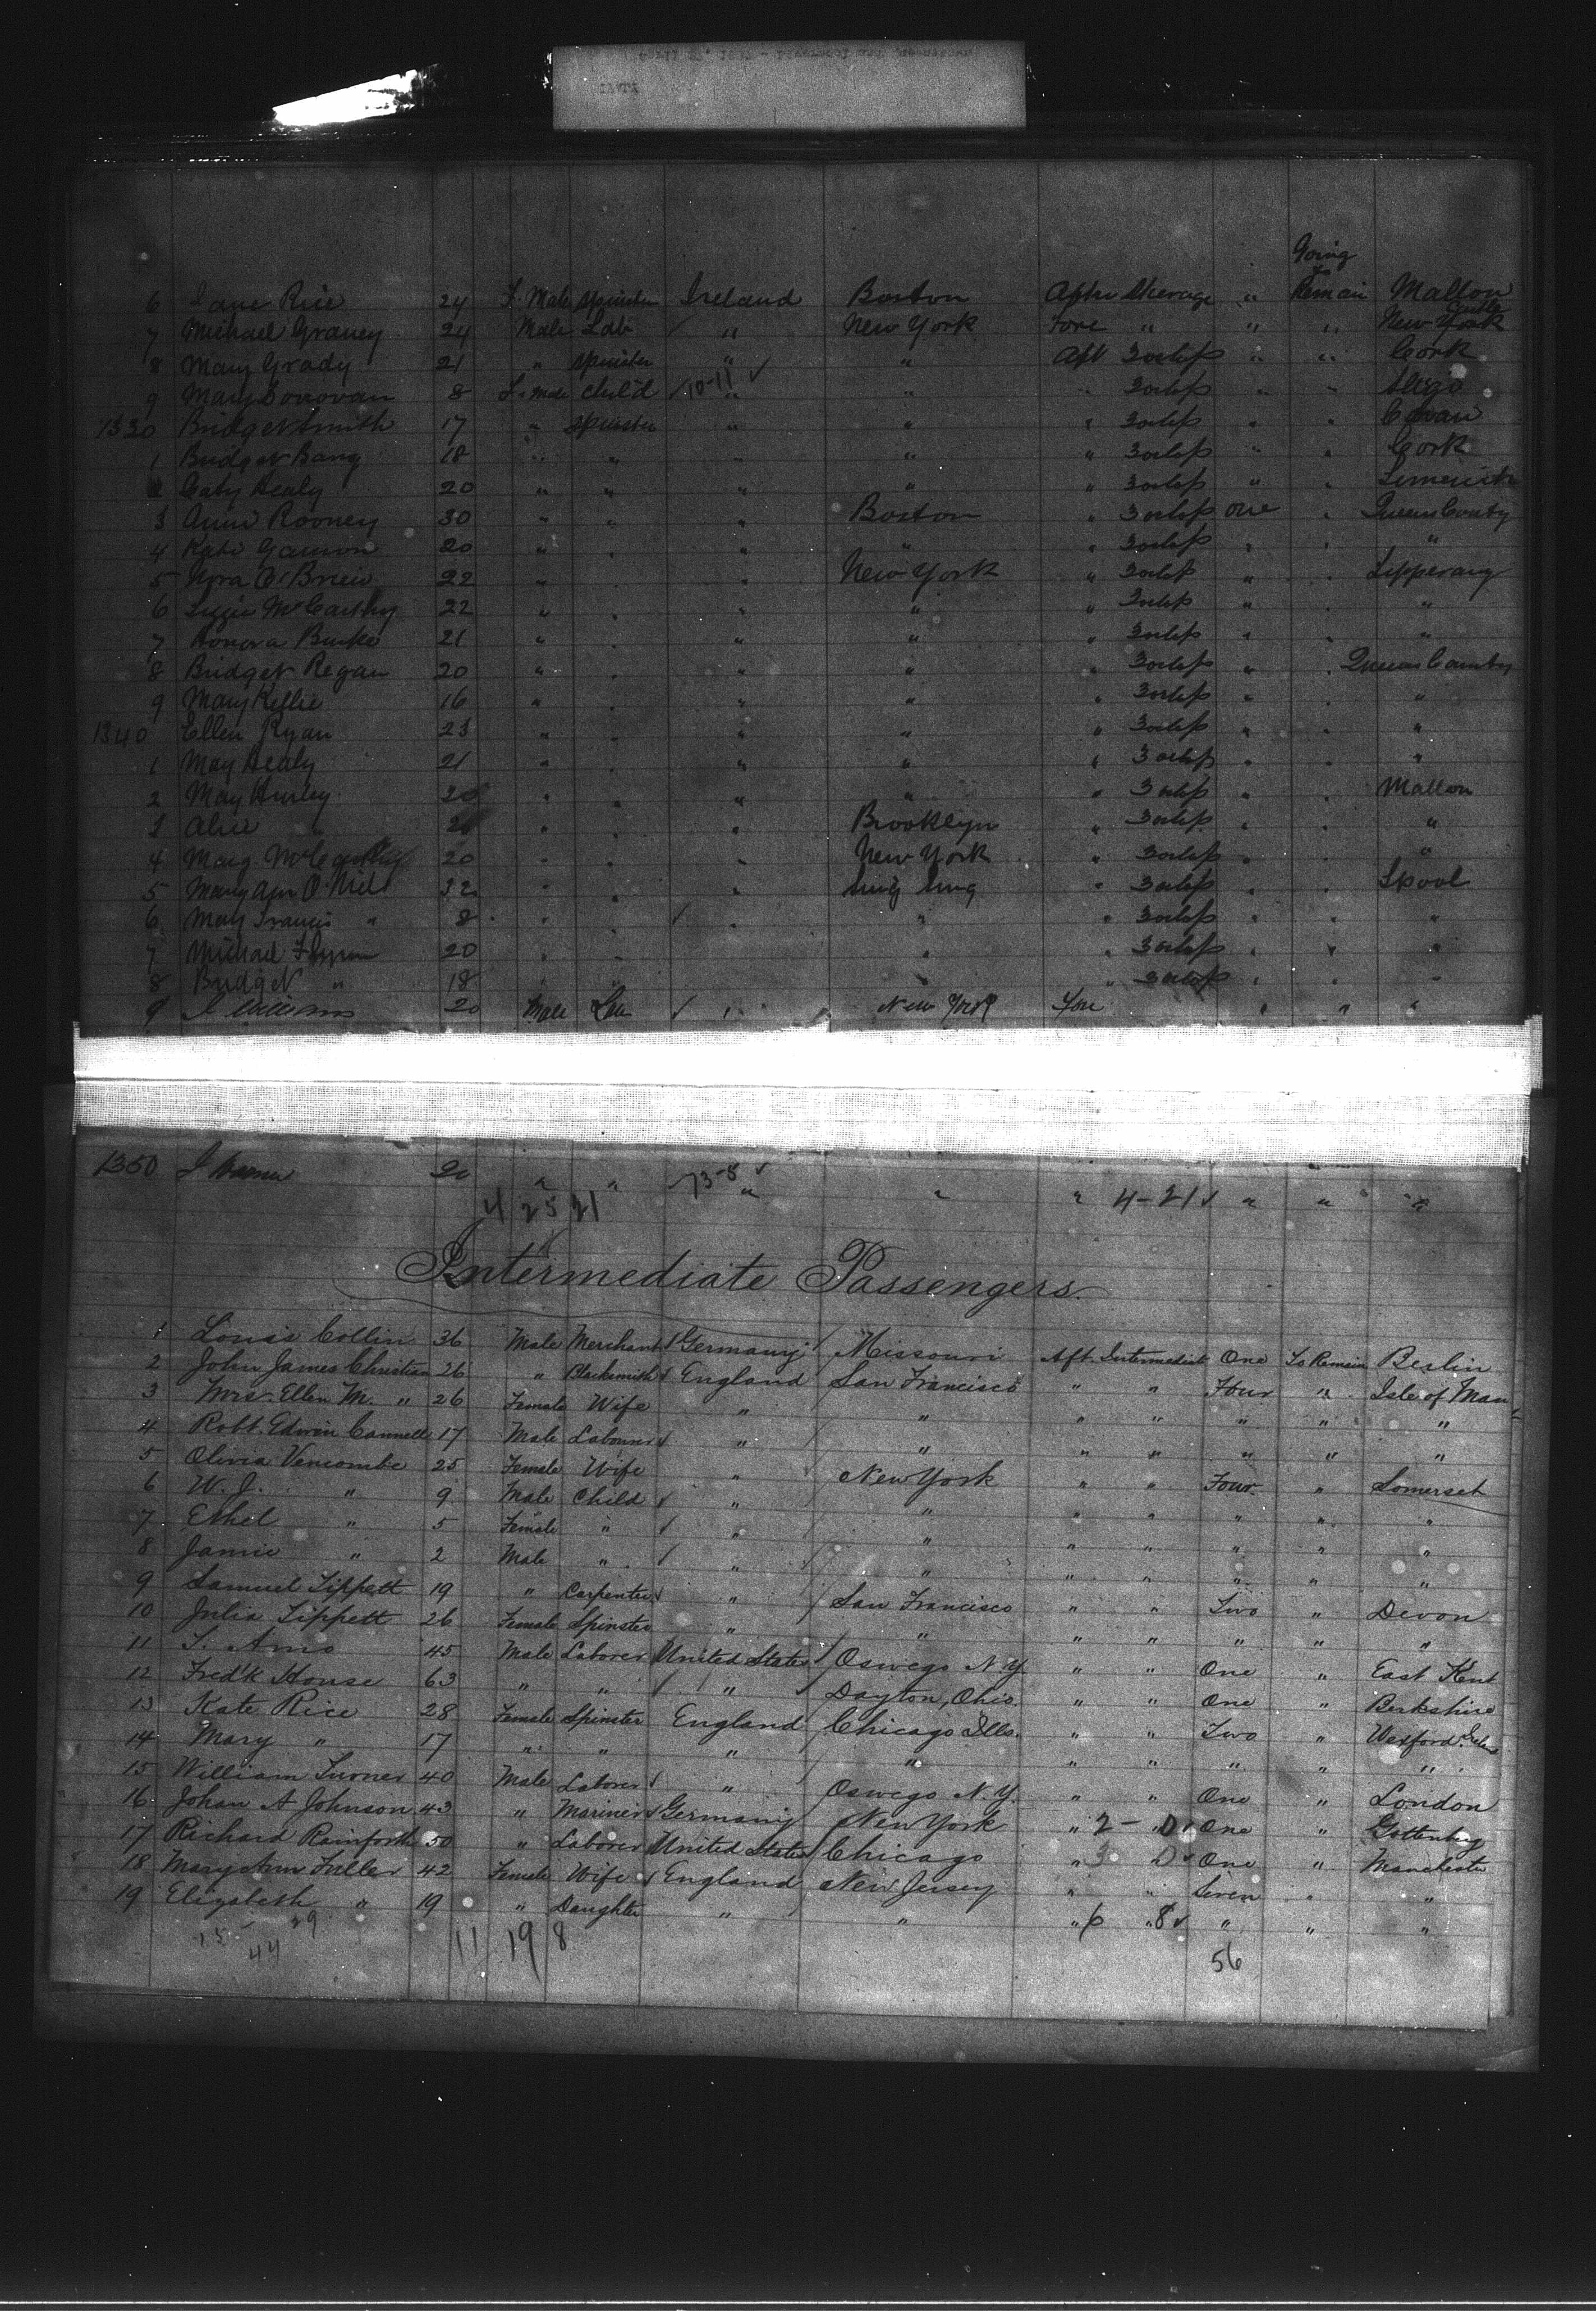 Going
6 Jane Rice 24 F. Male Spinster Ireland Boston After Steerage " to Remain Mallow
7 Michael Graney 24 Male Lab " New York Fore " " " New York
8 Mary Grady 21 " Spinster " " Aft 3 orlop " " Cork
9 Mary Donovan 8 F. Male Child 10-11 " " " 3 orlop " " Sligo
1330 Bridget Smith 17 " Spinster " " " 3 orlop " " Cavan
1 Bridget 18 " " " " " 3 orlop " " Cork
2 Caty Healy 20 " " " " " 3 orlop " " Limerick
3 Annie Rooney 30 " " " Boston " 3 orlop One " Queens County
4 Kate Gannon 20 " " " " " 3 orlop " " "
5 Nora O'Brien 22 " " " New York " 3 orlop " " Tipperary
6 Lizzie McCarthy 22 " " " " " 3 orlop " " "
7 Honora Burke 21 " " " " " 3 orlop " " "
8 Bridget Regan 20 " " " " " 3 orlop " " Queens County
9 Mary 16 " " " " " 3 orlop " " "
1340 Ellen Ryan 23 " " " " " 3 orlop " " "
1 May Healy 21 " " " " " 3 orlop " " "
2 May Hurley 20 " " " " " 3 orlop " " Mallow
3 Alice " 20 " " " Brooklyn " 3 orlop " " "
4 Marg. McCarthy 20 " " " New York " 3 orlop " " "
5 Mary Ann O'Niel 32 " " " Sing Sing " 3 orlop " " Lpool
6 May Francis " 8 " " " " " 3 orlop " " "
7 Michael Flynn 20 " " " " " 3 orlop " " "
8 Bridget " 18 " " " " " 3 orlop " " "
9 J Williams 20 Male Lab " New York Fore " " "
1350 J 20 " " 73-8 " " " 4-21 " " "
4 25 21
Intermediate Passengers.
1 Louis Collin 36 Male Merchant Germany Missouri Aft Intermediate One To Remain Berlin
2 John James Christian 26 " Blacksmith England San Francisco " " Four " Isle of Man
3 Mrs. Ellen M. " 26 Female Wife " " " " " " "
4 Robt. Edwin Cannell 17 Male Labourer " " " " " " "
5 Olivia Vencombe 25 Female Wife " New York " " Four " Somerset
6 W. J. " 9 Male Child " " " " " " "
7 Ethel " 5 Female " " " " " " " "
8 Jamie " 2 Male " " " " " " " "
9 Samuel Tippett 19 " Carpenter " San Francisco " " Two " Devon
10 Julia Tippett 26 Female Spinster " " " " " " "
11 T. Amo 45 Male Laborer United States Oswego N.Y. " " One " East Kent
12 Fredk House 63 " " " Dayton, Ohio. " " One " Berkshire
13 Kate Rice 28 Female Spinster England Chicago Ills. " " Two " Wexford
14 Mary " 17 " " " " " " " " "
15 William Turner 40 Male Laborer " Oswego N.Y. " " One " London
16 Johan A Johnson 43 " Mariner Germany New York " 2 - " 0 One " Gottenberg
17 Richard Rainforth 50 " Laborer United States Chicago " 3 " 0 One " Manchester
18 Mary Ann Fuller 42 Female Wife England New Jersey " " Seven " "
19 Elizabeth " 19 " Daughter " " " 6 " 8 " " "
15 29
44 11 19 8
56